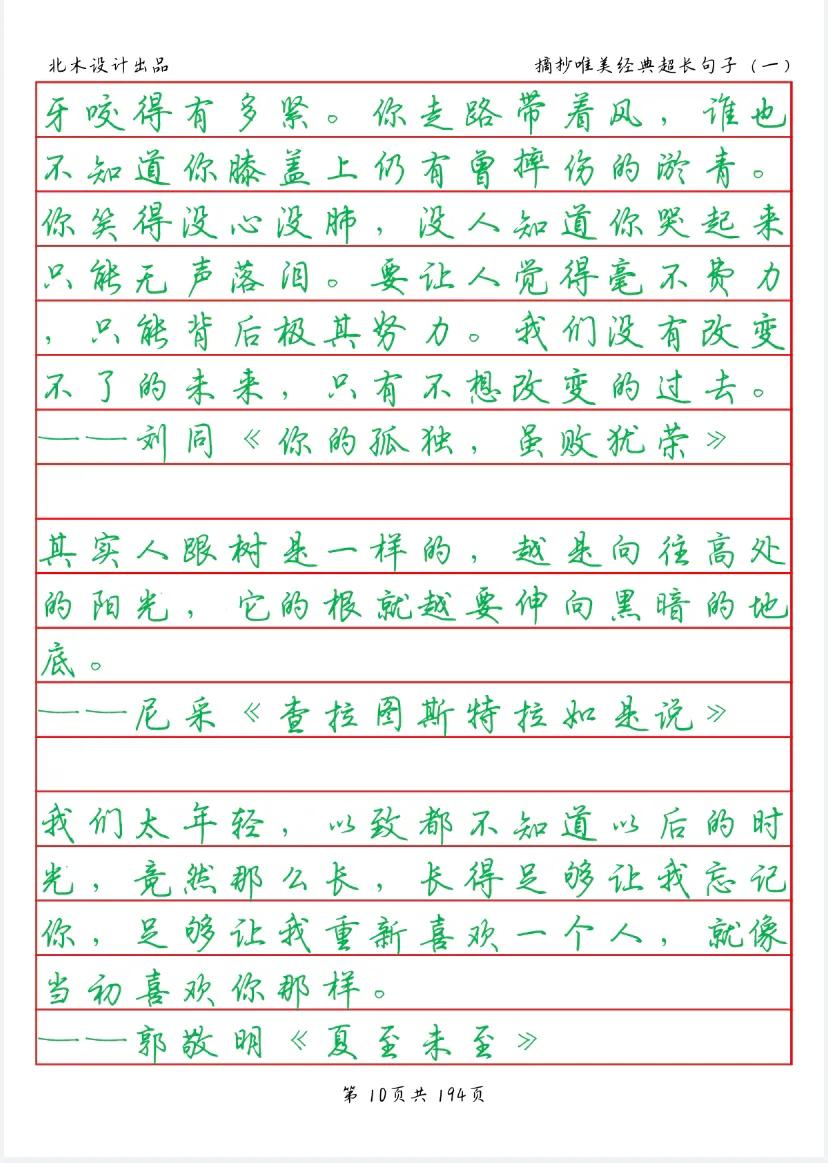 北木设计出品
摘抄唯美经典超长句子（一）
牙咬得有多紧。你走路带着风，谁也
不知道你膝盖上仍有曾摔伤的淤青。
你笑得没心没肺，没人知道你哭起来
只能无声落泪。要让人觉得毫不费力
，只能背后极其努力。我们没有改变
不了的未来，只有不想改变的过去。
——刘同《你的孤独，虽败犹荣》
其实人跟树是一样的，越是向往高处
的阳光，它的根就越要伸向黑暗的地
底。
——尼采《查拉图斯特拉如是说》
我们太年轻，以致都不知道以后的时
光，竟然那么长，长得足够让我忘记
你，足够让我重新喜欢一个人，就像
当初喜欢你那样。
——郭敬明《夏至未至》
第 10页共 194页